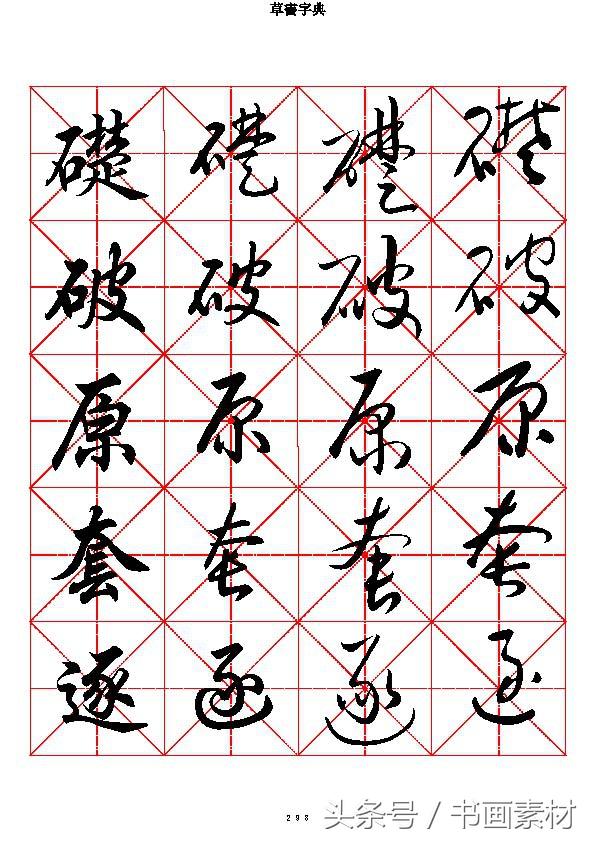 草書字典
礎 礎 礎 礎
破 破 破 破
原 原 原 原
套 套 套 套
逐 逐 逐 逐
298
头条号 / 书画素材